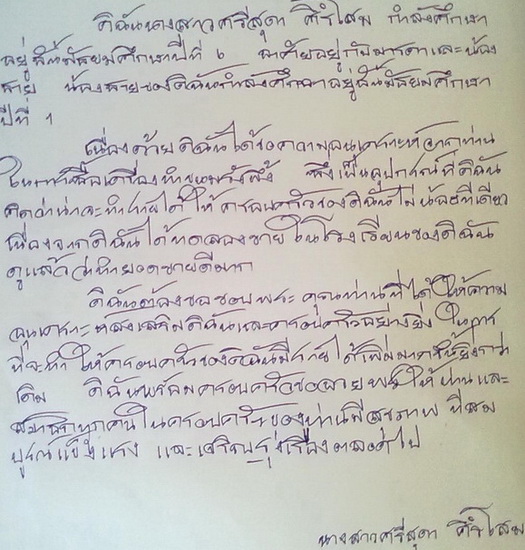 ดิฉันนางสาวศรีสุดา ศิริโสม กำลังศึกษา
อยู่ชั้นมัธยมศึกษาปีที่ ๖ อาศัยอยู่กับมารดาและน้อง
ชาย น้องชายของดิฉันกำลังศึกษาอยู่ชั้นมัธยมศึกษา
ปีที่ 1
เนื่องด้วยดิฉันได้ขอความอนุเคราะห์จากท่าน
ในการซื้อเครื่องทำขนมรังผึ้ง ซึ่งเป็นอุปกรณ์ที่ดิฉัน
คิดว่าน่าจะทำรายได้ให้ครอบครัวของดิฉันไม่น้อยทีเดียว
เนื่องจากดิฉันได้ทดลองขายในโรงเรียนของดิฉัน
ดูแล้วว่ายอดขายดีมาก
ดิฉันต้องขอขอบพระคุณท่านที่ได้ให้ความ
อนุเคราะห์ส่งเสริมดิฉันและครอบครัวอย่างยิ่ง ในการ
ที่จะทำให้ครอบครัวของดิฉันมีรายได้เพิ่มมากขึ้นยิ่งกว่า
เดิม ดิฉันพร้อมครอบครัวขออวยพรให้ท่านและ
สมาชิกทุกคนในครอบครัวของท่านมีสุขภาพที่สม
บูรณ์แข็งแรง และเจริญรุ่งเรืองตลอดไป
นางสาวศรีสุดา ศิริโสม